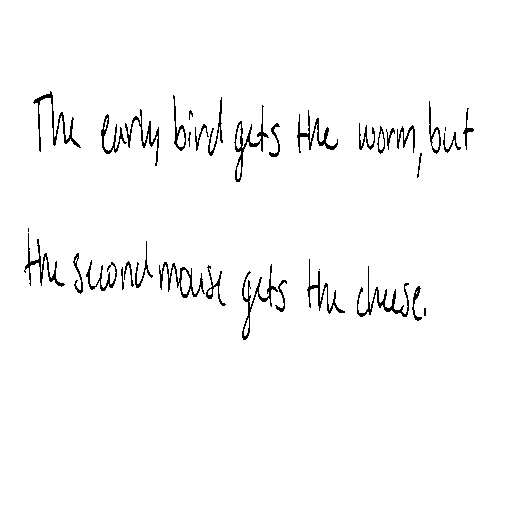 The early bird gets the worm, but
the second mouse gets the cheese.